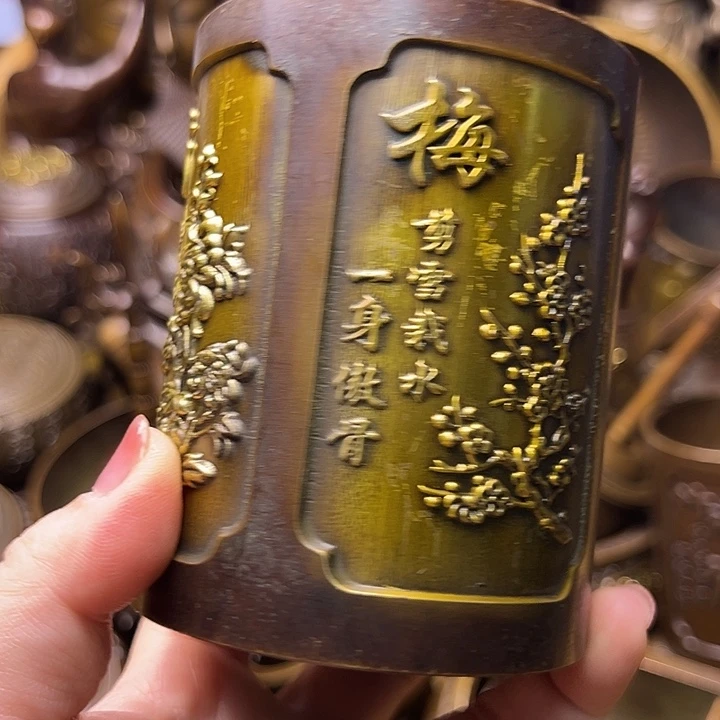 梅
剪雪裁冰
一身傲骨